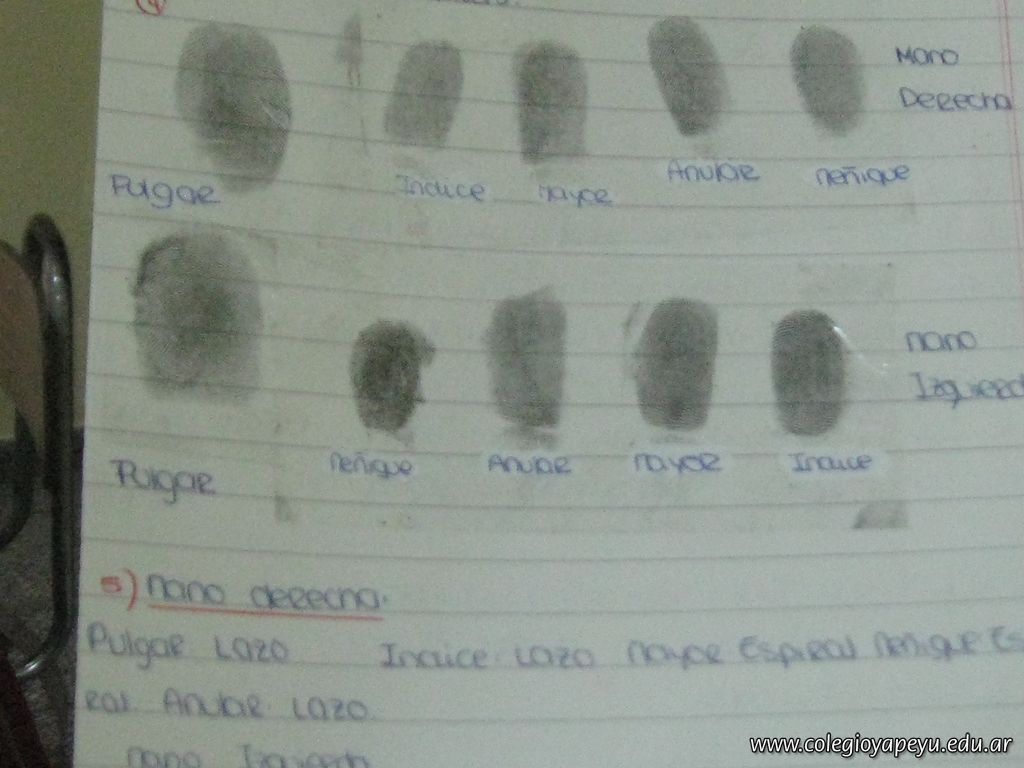 4)
Mano
Derecha
Pulgar Indice Mayor Anular Meñique
Mano
Izquierda
Pulgar Meñique Anular Mayor Indice
5) Mano derecha.
Pulgar Lazo Indice Lazo Mayor Espiral Meñique Es
ral Anular Lazo.
Mano Izquierda
www.colegioyapeyu.edu.ar